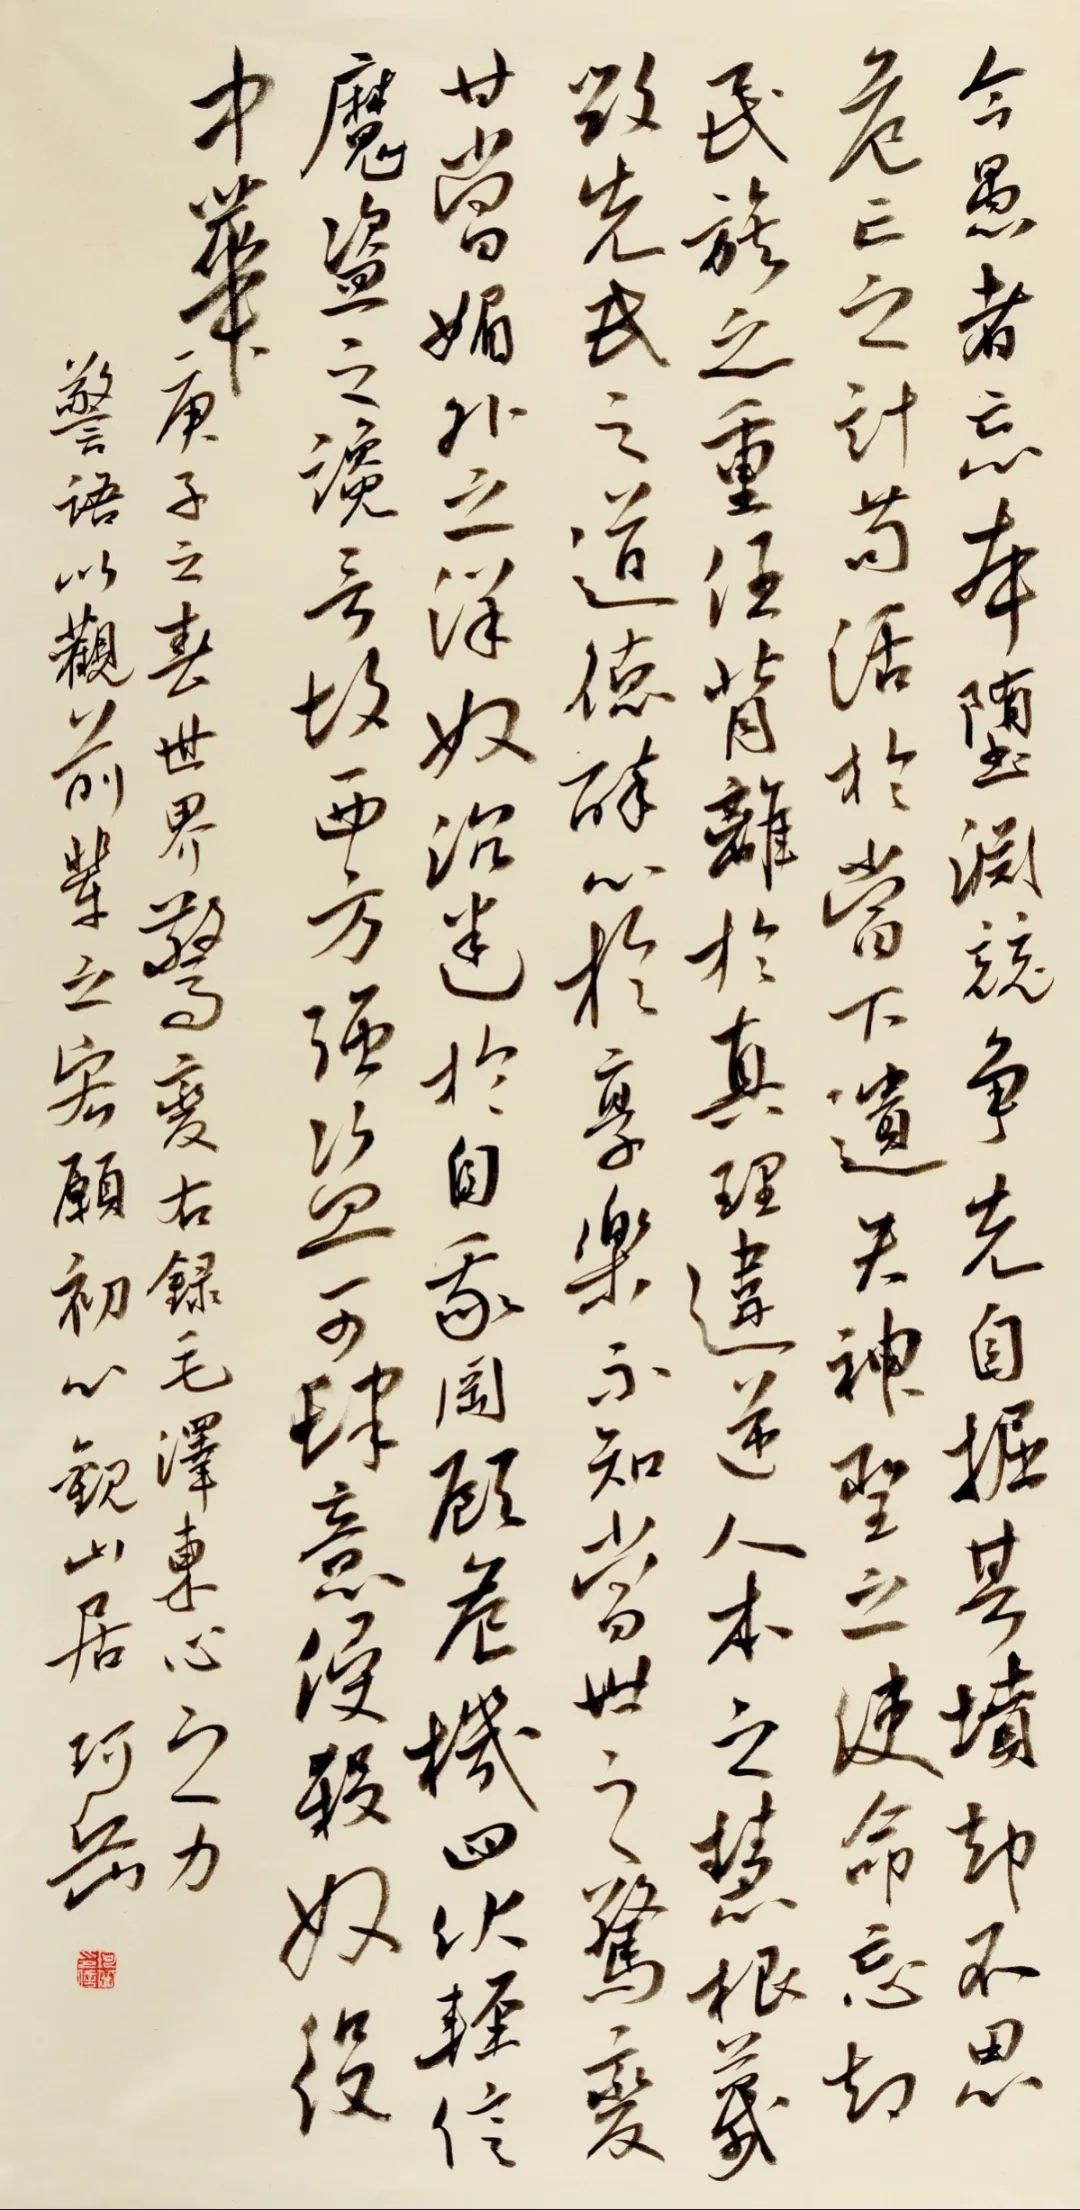 今愚者忘本墮淵競争先自掘其墳却不思
危亡之計苟活於當下遺天神聖之使命忘却
民族之重任背離於真理違逆人本之慧根蔑
毁先民之道德醉心於享樂不知當世之驚變
甘當媚外之洋奴沉迷於自我罔顧危機四伏輕信
魔盜之讒言故西方强盜可肆意侵殺奴役
中華
庚子之春世界驚變右録毛澤東心之力
警語以觀前輩之宏願初心觀山居 珂岳